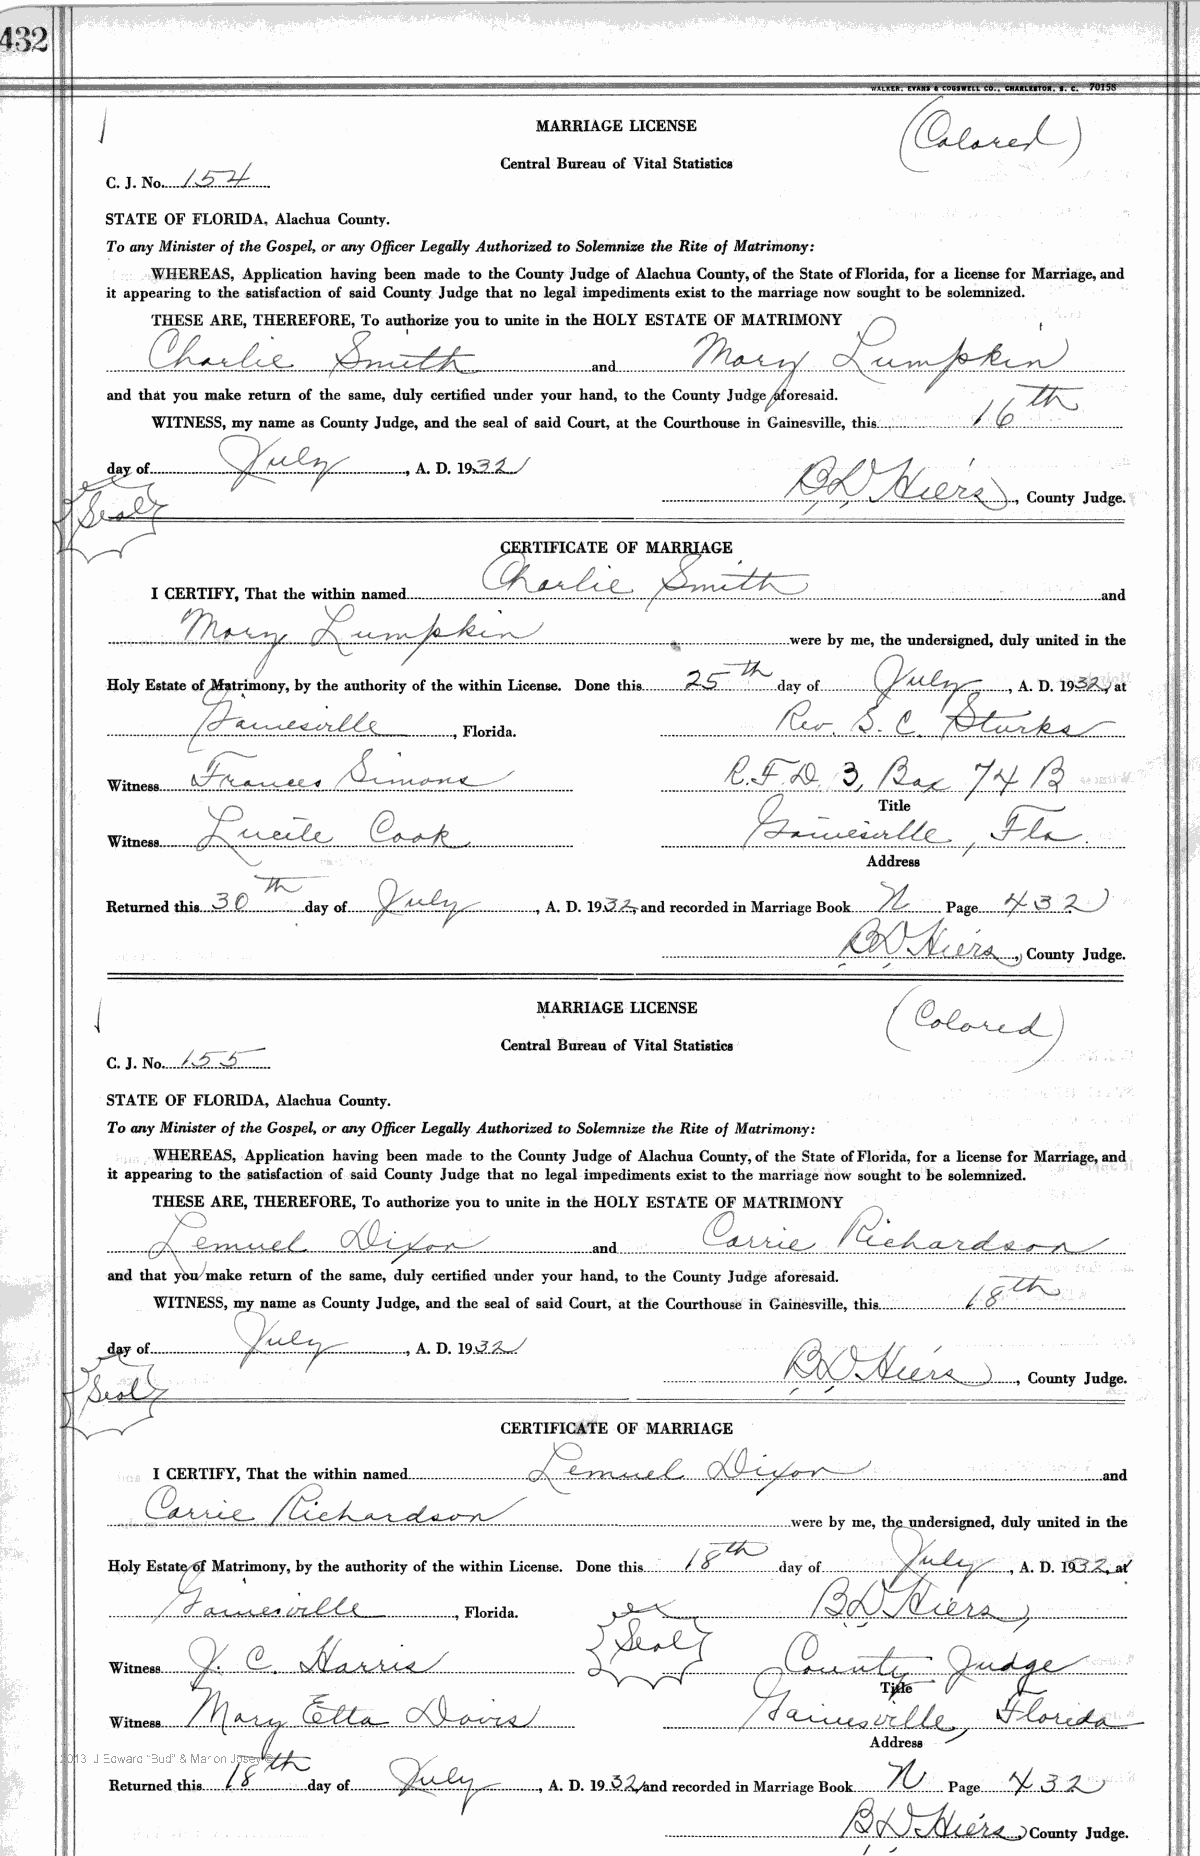 432
WALKER, EVANS & COGSWELL CO., CHARLESTON, S. C. 70158
MARRIAGE LICENSE
(Colored)
Central Bureau of Vital Statistics
C. J. No. 154
STATE OF FLORIDA, Alachua County.
To any Minister of the Gospel, or any Officer Legally Authorized to Solemnize the Rite of Matrimony:
WHEREAS, Application having been made to the County Judge of Alachua County, of the State of Florida, for a license for Marriage, and
it appearing to the satisfaction of said County Judge that no legal impediments exist to the marriage now sought to be solemnized.
THESE ARE, THEREFORE, To authorize you to unite in the HOLY ESTATE OF MATRIMONY
Charlie Smith and Mary Lumpkin
and that you make return of the same, duly certified under your hand, to the County Judge aforesaid.
WITNESS, my name as County Judge, and the seal of said Court, at the Courthouse in Gainesville, this 16th
day of July, A. D. 1932
B D Hiers, County Judge.
Seal
CERTIFICATE OF MARRIAGE
I CERTIFY, That the within named Charlie Smith and
Mary Lumpkin were by me, the undersigned, duly united in the
Holy Estate of Matrimony, by the authority of the within License. Done this 25th day of July, A. D. 1932, at
Gainesville, Florida. Rev. S. C. Sturks
Witness Frances Simons R.F.D. 3, Box 74 B
Title
Witness Lucile Cook Gainesville, Fla.
Address
Returned this 30th day of July, A. D. 1932, and recorded in Marriage Book N Page 432
B D Hiers, County Judge.
MARRIAGE LICENSE
(Colored)
Central Bureau of Vital Statistics
C. J. No. 155
STATE OF FLORIDA, Alachua County.
To any Minister of the Gospel, or any Officer Legally Authorized to Solemnize the Rite of Matrimony:
WHEREAS, Application having been made to the County Judge of Alachua County, of the State of Florida, for a license for Marriage, and
it appearing to the satisfaction of said County Judge that no legal impediments exist to the marriage now sought to be solemnized.
THESE ARE, THEREFORE, To authorize you to unite in the HOLY ESTATE OF MATRIMONY
Lemuel Dixon and Carrie Richardson
and that you make return of the same, duly certified under your hand, to the County Judge aforesaid.
WITNESS, my name as County Judge, and the seal of said Court, at the Courthouse in Gainesville, this 18th
day of July, A. D. 1932
B D Hiers, County Judge.
Seal
CERTIFICATE OF MARRIAGE
I CERTIFY, That the within named Lemuel Dixon and
Carrie Richardson were by me, the undersigned, duly united in the
Holy Estate of Matrimony, by the authority of the within License. Done this 18th day of July, A. D. 1932, at
Gainesville, Florida. B D Hiers,
Seal
Witness J. C. Harris County Judge
Title
Witness Mary Etta Davis Gainesville, Florida
Address
2013 J Edward "Bud" & Marion Josey ©
Returned this 18th day of July, A. D. 1932, and recorded in Marriage Book N Page 432
B D Hiers, County Judge.